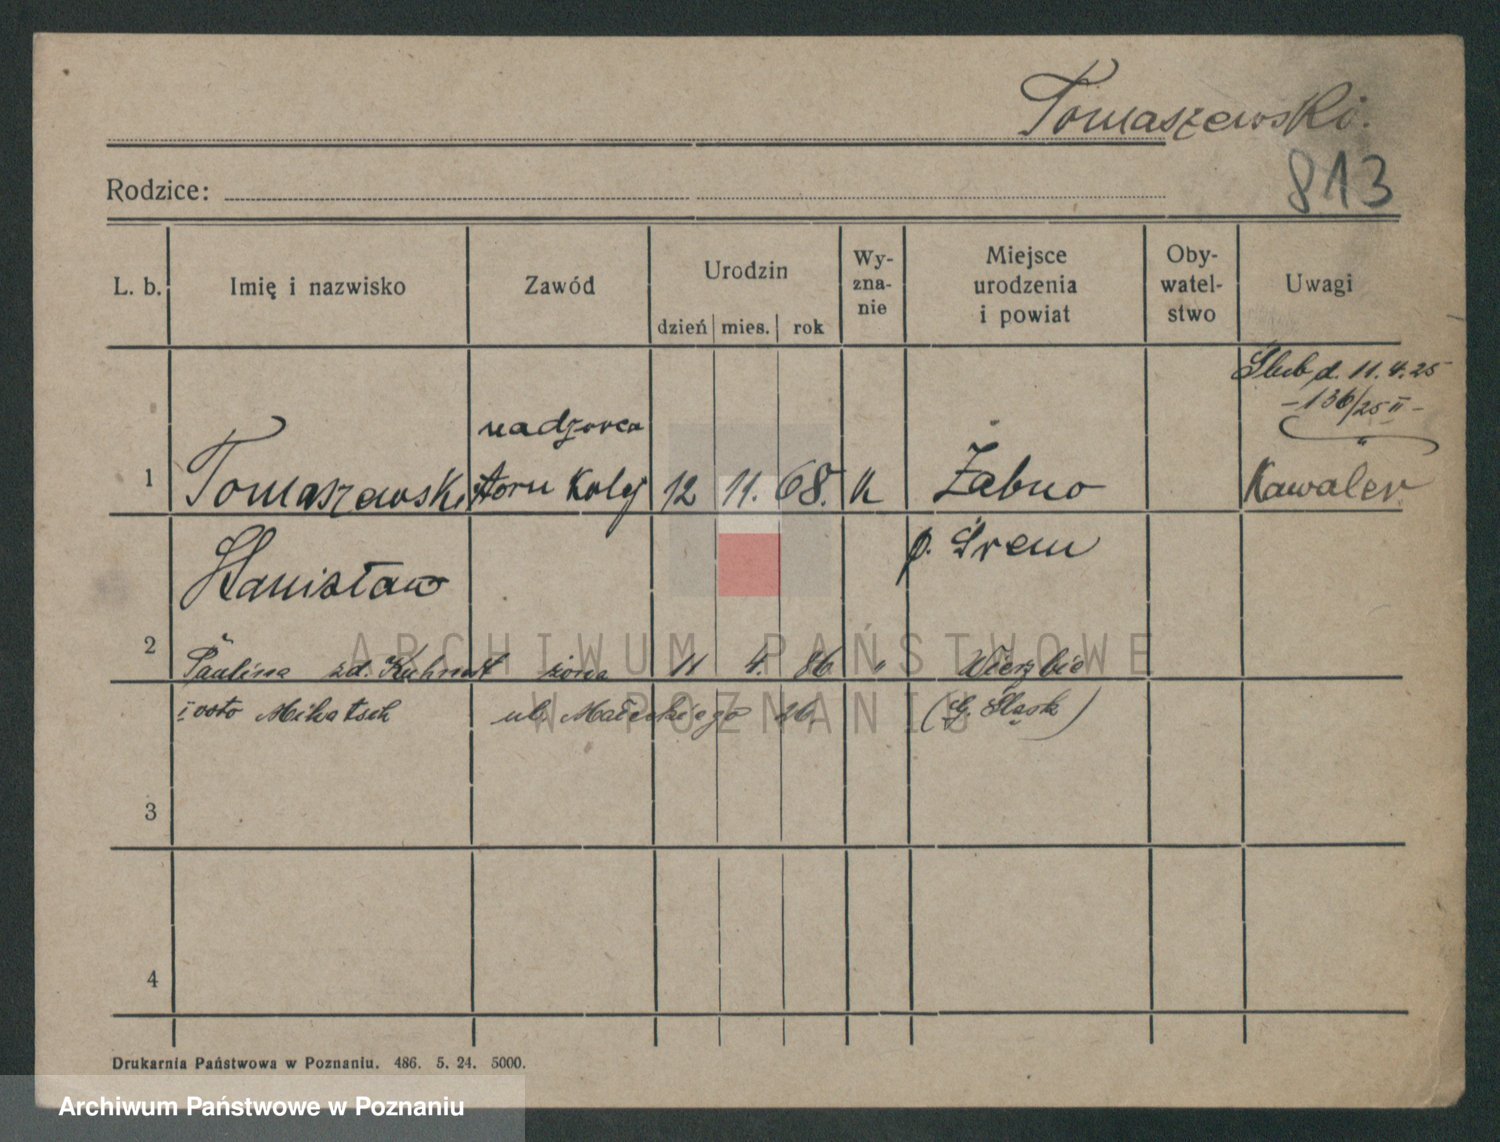 Tomaszewski.
813
Rodzice:
L. b. Imię i nazwisko Zawód Urodzin dzień mies. rok Wy-zna-nie Miejsce urodzenia i powiat Oby-watel-stwo Uwagi
Ślub d. 11.4.25
-136/25 II-
nadzorca
1 Tomaszewski toru Kolej 12 11. 68. K Żabno Kawaler
Stanisław p. Śrem
2 Paulina zd. żona 11 4. 86 " Wierzbie
ul. Małeckiego 26. (G. Śląsk)
3
4
Drukarnia Państwowa w Poznaniu. 486. 5. 24. 5000.
ARCHIWUM PAŃSTWOWE
W POZNANIU
Archiwum Państwowe w Poznaniu